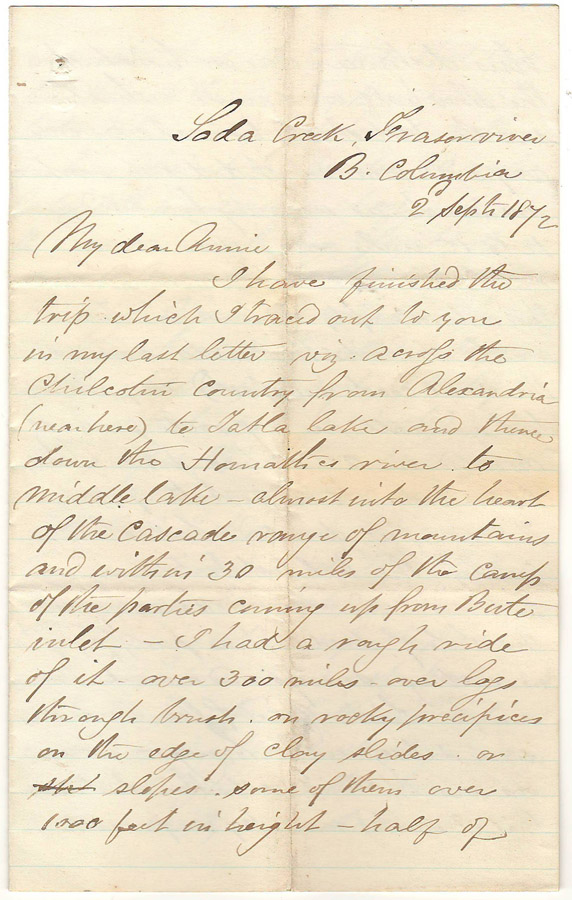 Soda Creek, Fraser river
B. Columbia
2d Septr 1872
My dear Annie
I have finished the
trip which I traced out to you
in my last letter viz. across the
Chilcotin country from Alexandria
(near here) to Tatla lake and thence
down the Homathco river to
middle lake - almost into the heart
of the Cascade range of mountains
and within 30 miles of the camp
of the parties coming up from Bute
inlet - I had a rough ride
of it - over 300 miles - over logs
through brush. on rocky precipices
on the edge of clay slides. or
slopes. some of them over
1000 feet in height - half of